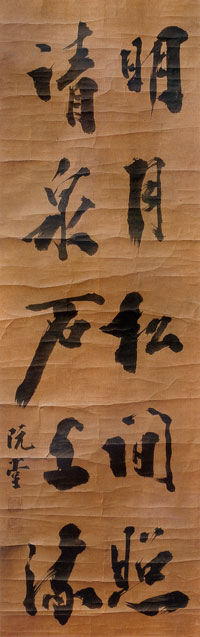 明月松间照
清泉石上流
阮堂